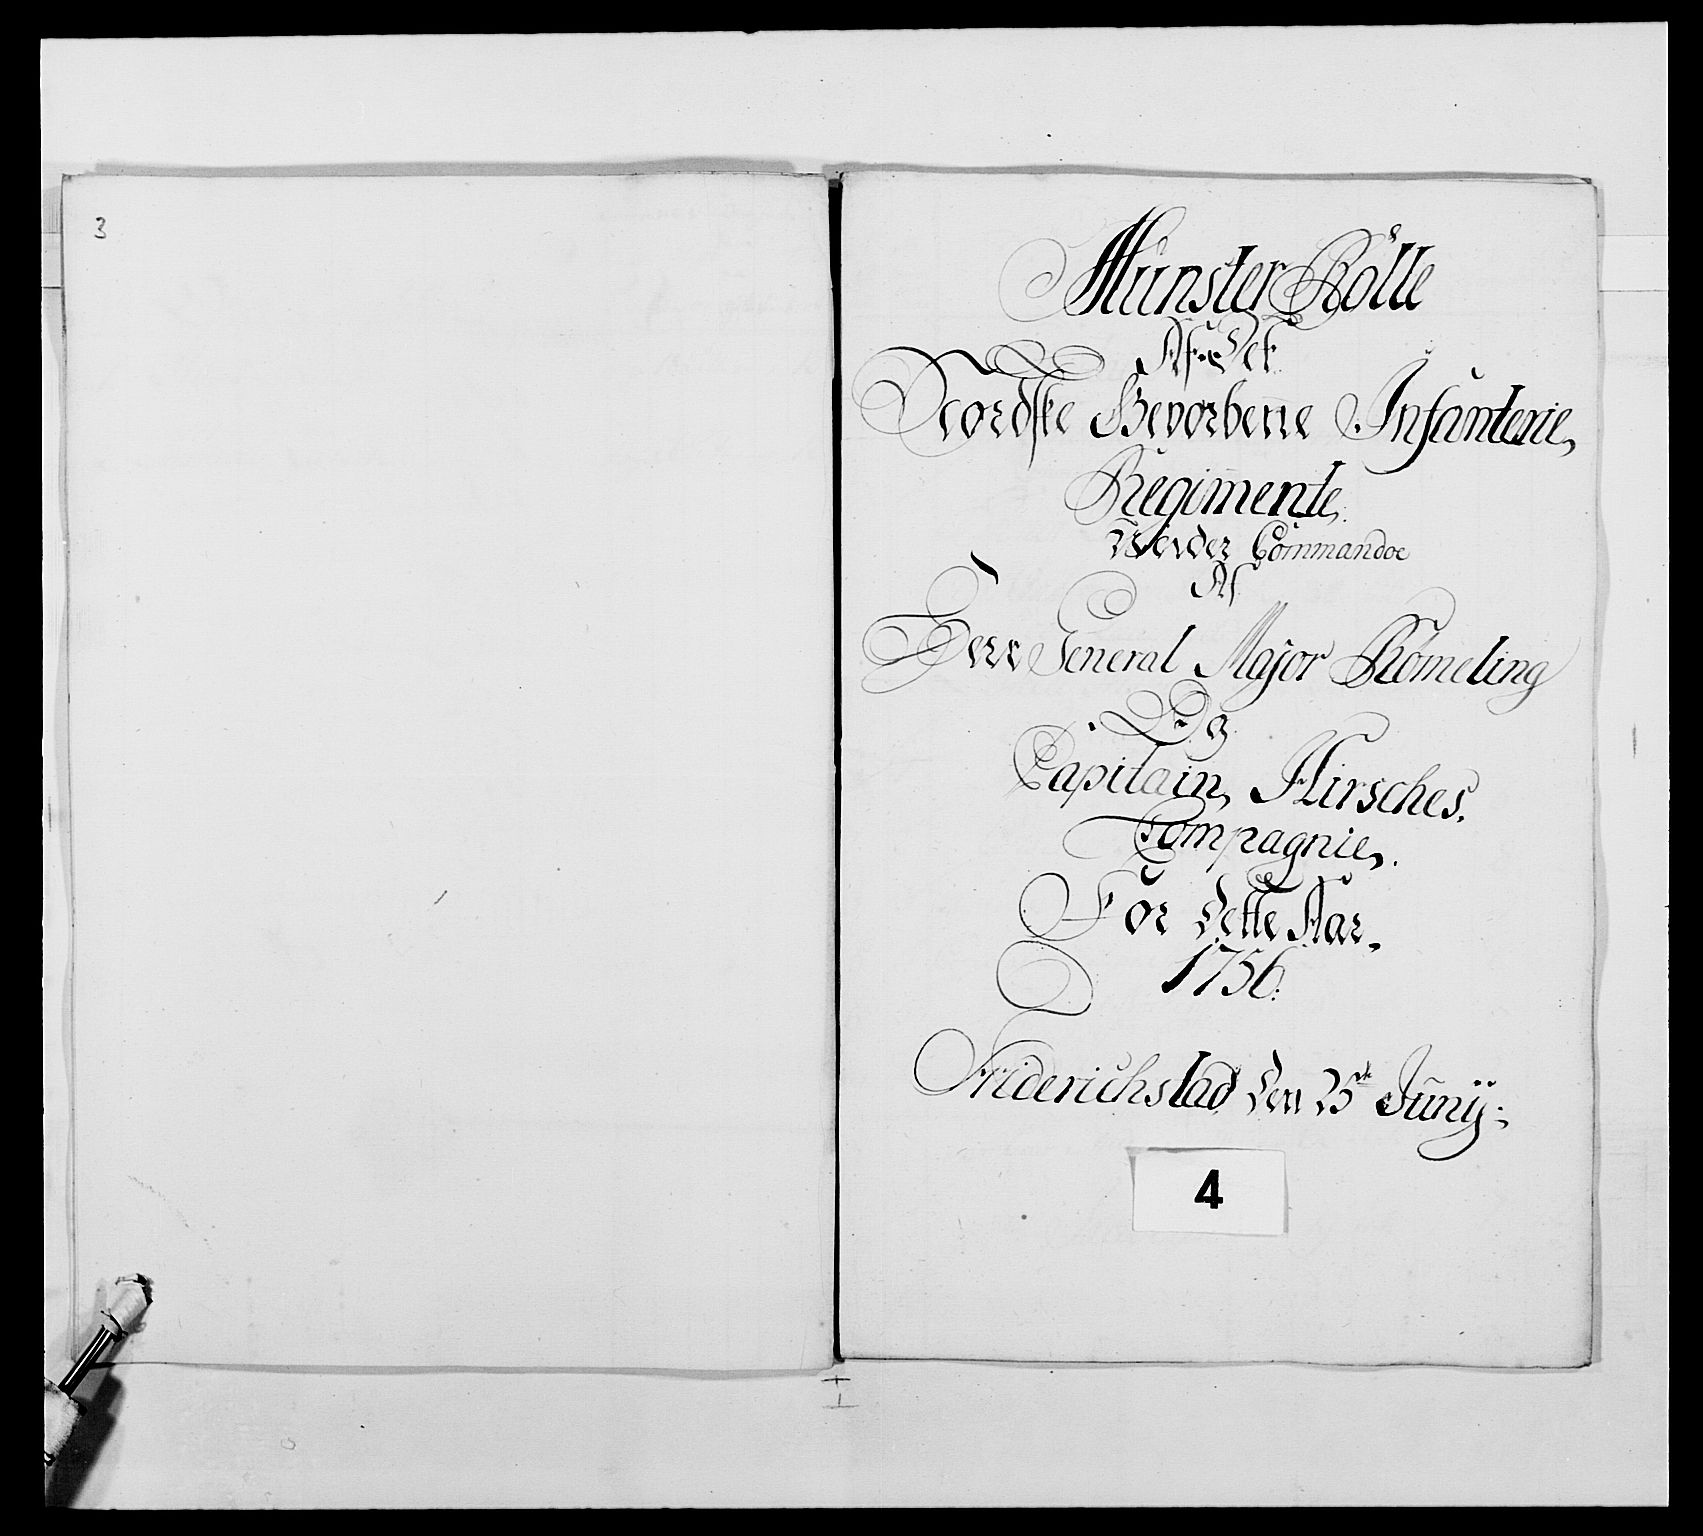 3
Münster Rolle
Af Det
Nordske Gevorbene Infanterie,
Regimente,
Under Commandoe
Af
Herr General Major Römeling
Og
Capitain, Hirsches,
Compagnie,.
For dette Aar,
1756.
Friderichstad den 25de Junij:
4